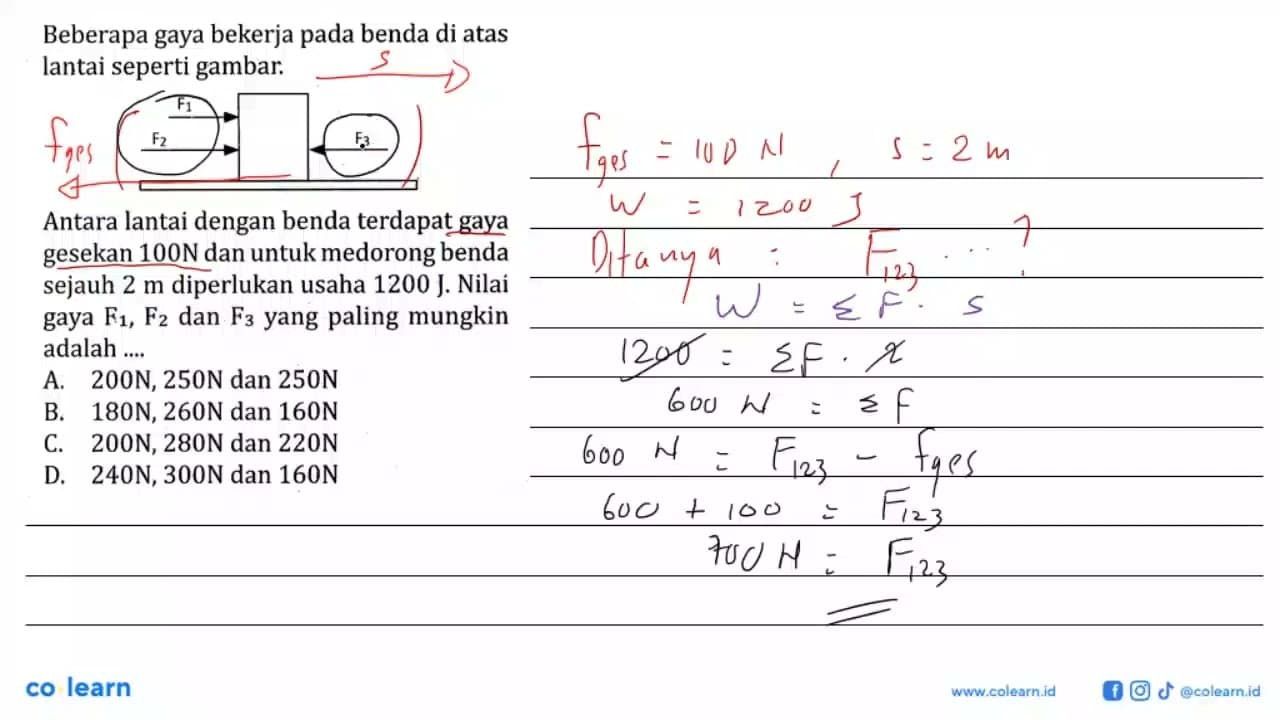 Beberapa gaya bekerja pada benda di atas
lantai seperti gambar.
s
F1
F2
F3
fges
Antara lantai dengan benda terdapat gaya
gesekan 100N dan untuk medorong benda
sejauh 2 m diperlukan usaha 1200 J. Nilai
gaya F1, F2 dan F3 yang paling mungkin
adalah ....
A. 200N, 250N dan 250N
B. 180N, 260N dan 160N
C. 200N, 280N dan 220N
D. 240N, 300N dan 160N
fges = 100 N , s = 2 m
W = 1200 J
Ditanya : F123 ... ?
W = Σ F . s
1200 = ΣF . 2
600 N = Σ F
600 N = F123 - fges
600 + 100 = F123
700 N = F123
co learn
www.colearn.id
@colearn.id